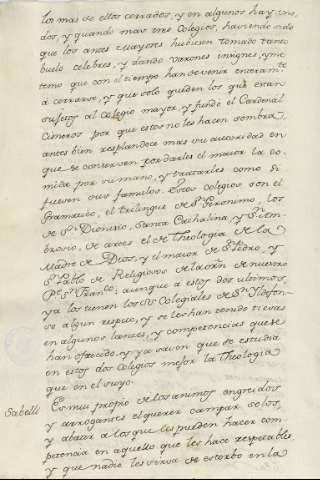 los mas de ellos cerrados, y en algunos hay
dos, y quando mas tres Colegios, haviendo sido
que los antes mayores huviesen tomado tanto
buelo celebres, y dando varones insignes, y me
temo que con el tiempo han de venir enteramte
a cerrarse, y que solo queden los que estan
sujetos al Colegio mayor, y fundó el Cardenal
Cisneros por que estos no les hacen sombra,
antes bien resplandece mas su autoridad en
que se conserven por darles el maior la co-
mida por su mano, y tratarles como si
fuesen sus famulos. Estos colegios son el
Gramatico, el trilingue de Sn Geronimo, los
de Sn Dionisio, Santa Cathalina, y Sn Am-
brosio, de artes el de Theologia de la
Madre de Dios, y el maior de Sn Pedro, y
Sn Pablo de Religiosos de la orn de nuestro
Pe Sn Franco; aunque a estos dos ultimos,
ya los tienen los SSs Colegiales de Sn Ildefon-
so algun respeto, y se les han tenido tiesas
en algunos lances, y competencias que se
han ofrecido, y ya saven que se estudia
en estos dos colegios mejor la Theologia
que en el suyo.
Sabelli Es muy propio de los animos engreidos
y arrogantes el querer campar solos,
y abatir a los que les pueden hacer com-
petencia en aquello que les hace respetables,
y que nadie les sirva de estorbo en la